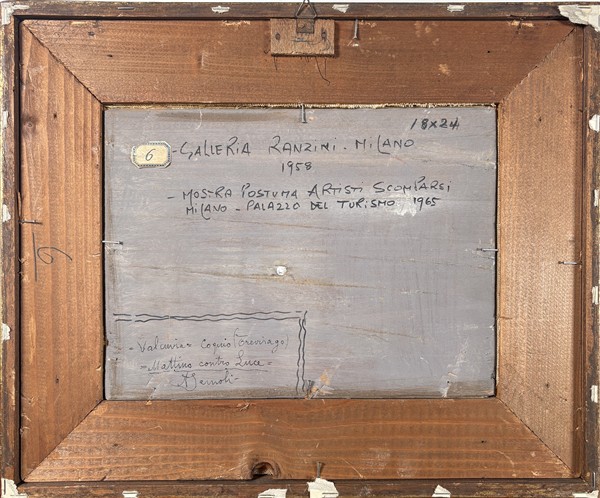 18x24
6 - GALLERIA RANZINI. MILANO
1958
- MOSTRA POSTUMA ARTISTI SCOMPARSI
MILANO - PALAZZO DEL TURISMO 1965
6
- Valcuvia = Coquio (Trevirago)
= Mattino contro Luce =